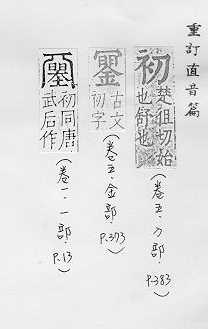 重訂直音篇
初 楚徂切始
也舒也
(卷五·刀部·
P.383)
古文
初字
(卷五·金部·
P.373)
初同唐
武后作
(卷一·一部·
P.13)